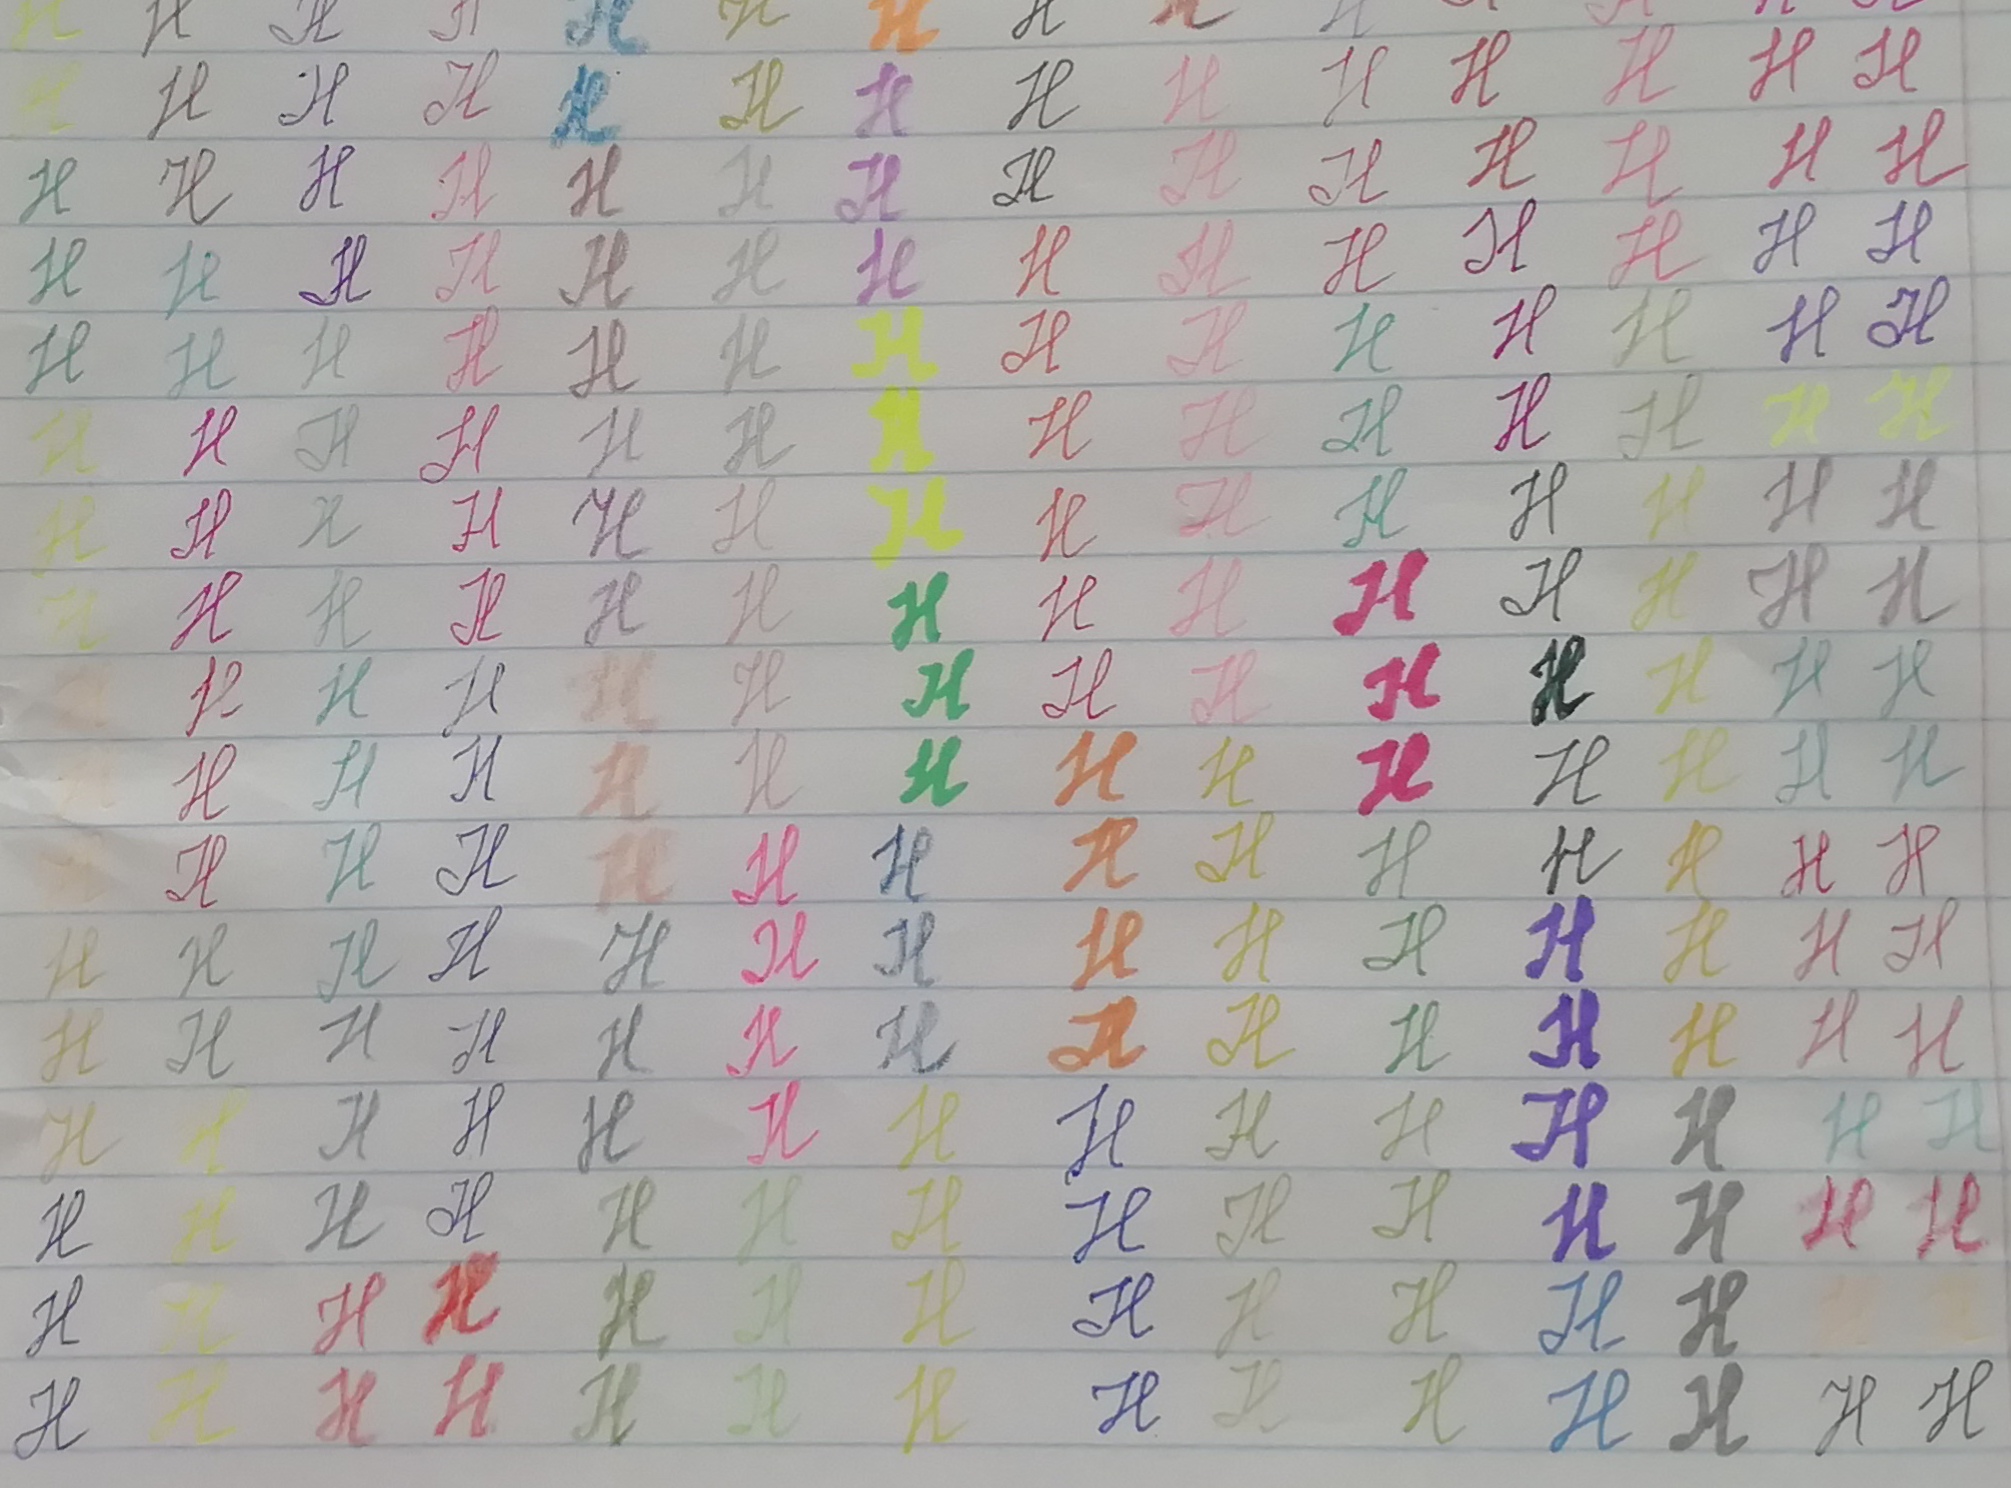 H H H H H H H H
H H H H H H H H H H H H H H
H H H H H H H H H H H H H H
H H H H H H H H H H H H H H
H H H H H H H H H H H H H H
H H H H H H H H H H H H H H
H H H H H H H H H H H H H H
H H H H H H H H H H H H H H
H H H H H H H H H H H H H H
H H H H H H H H H H H H H H
H H H H H H H H H H H H H H
H H H H H H H H H H H H H H
H H H H H H H H H H H H H H
H H H H H H H H H H H H H H
H H H H H H H H H H H H H H
H H H H H H H H H H H H
H H H H H H H H H H H H H H